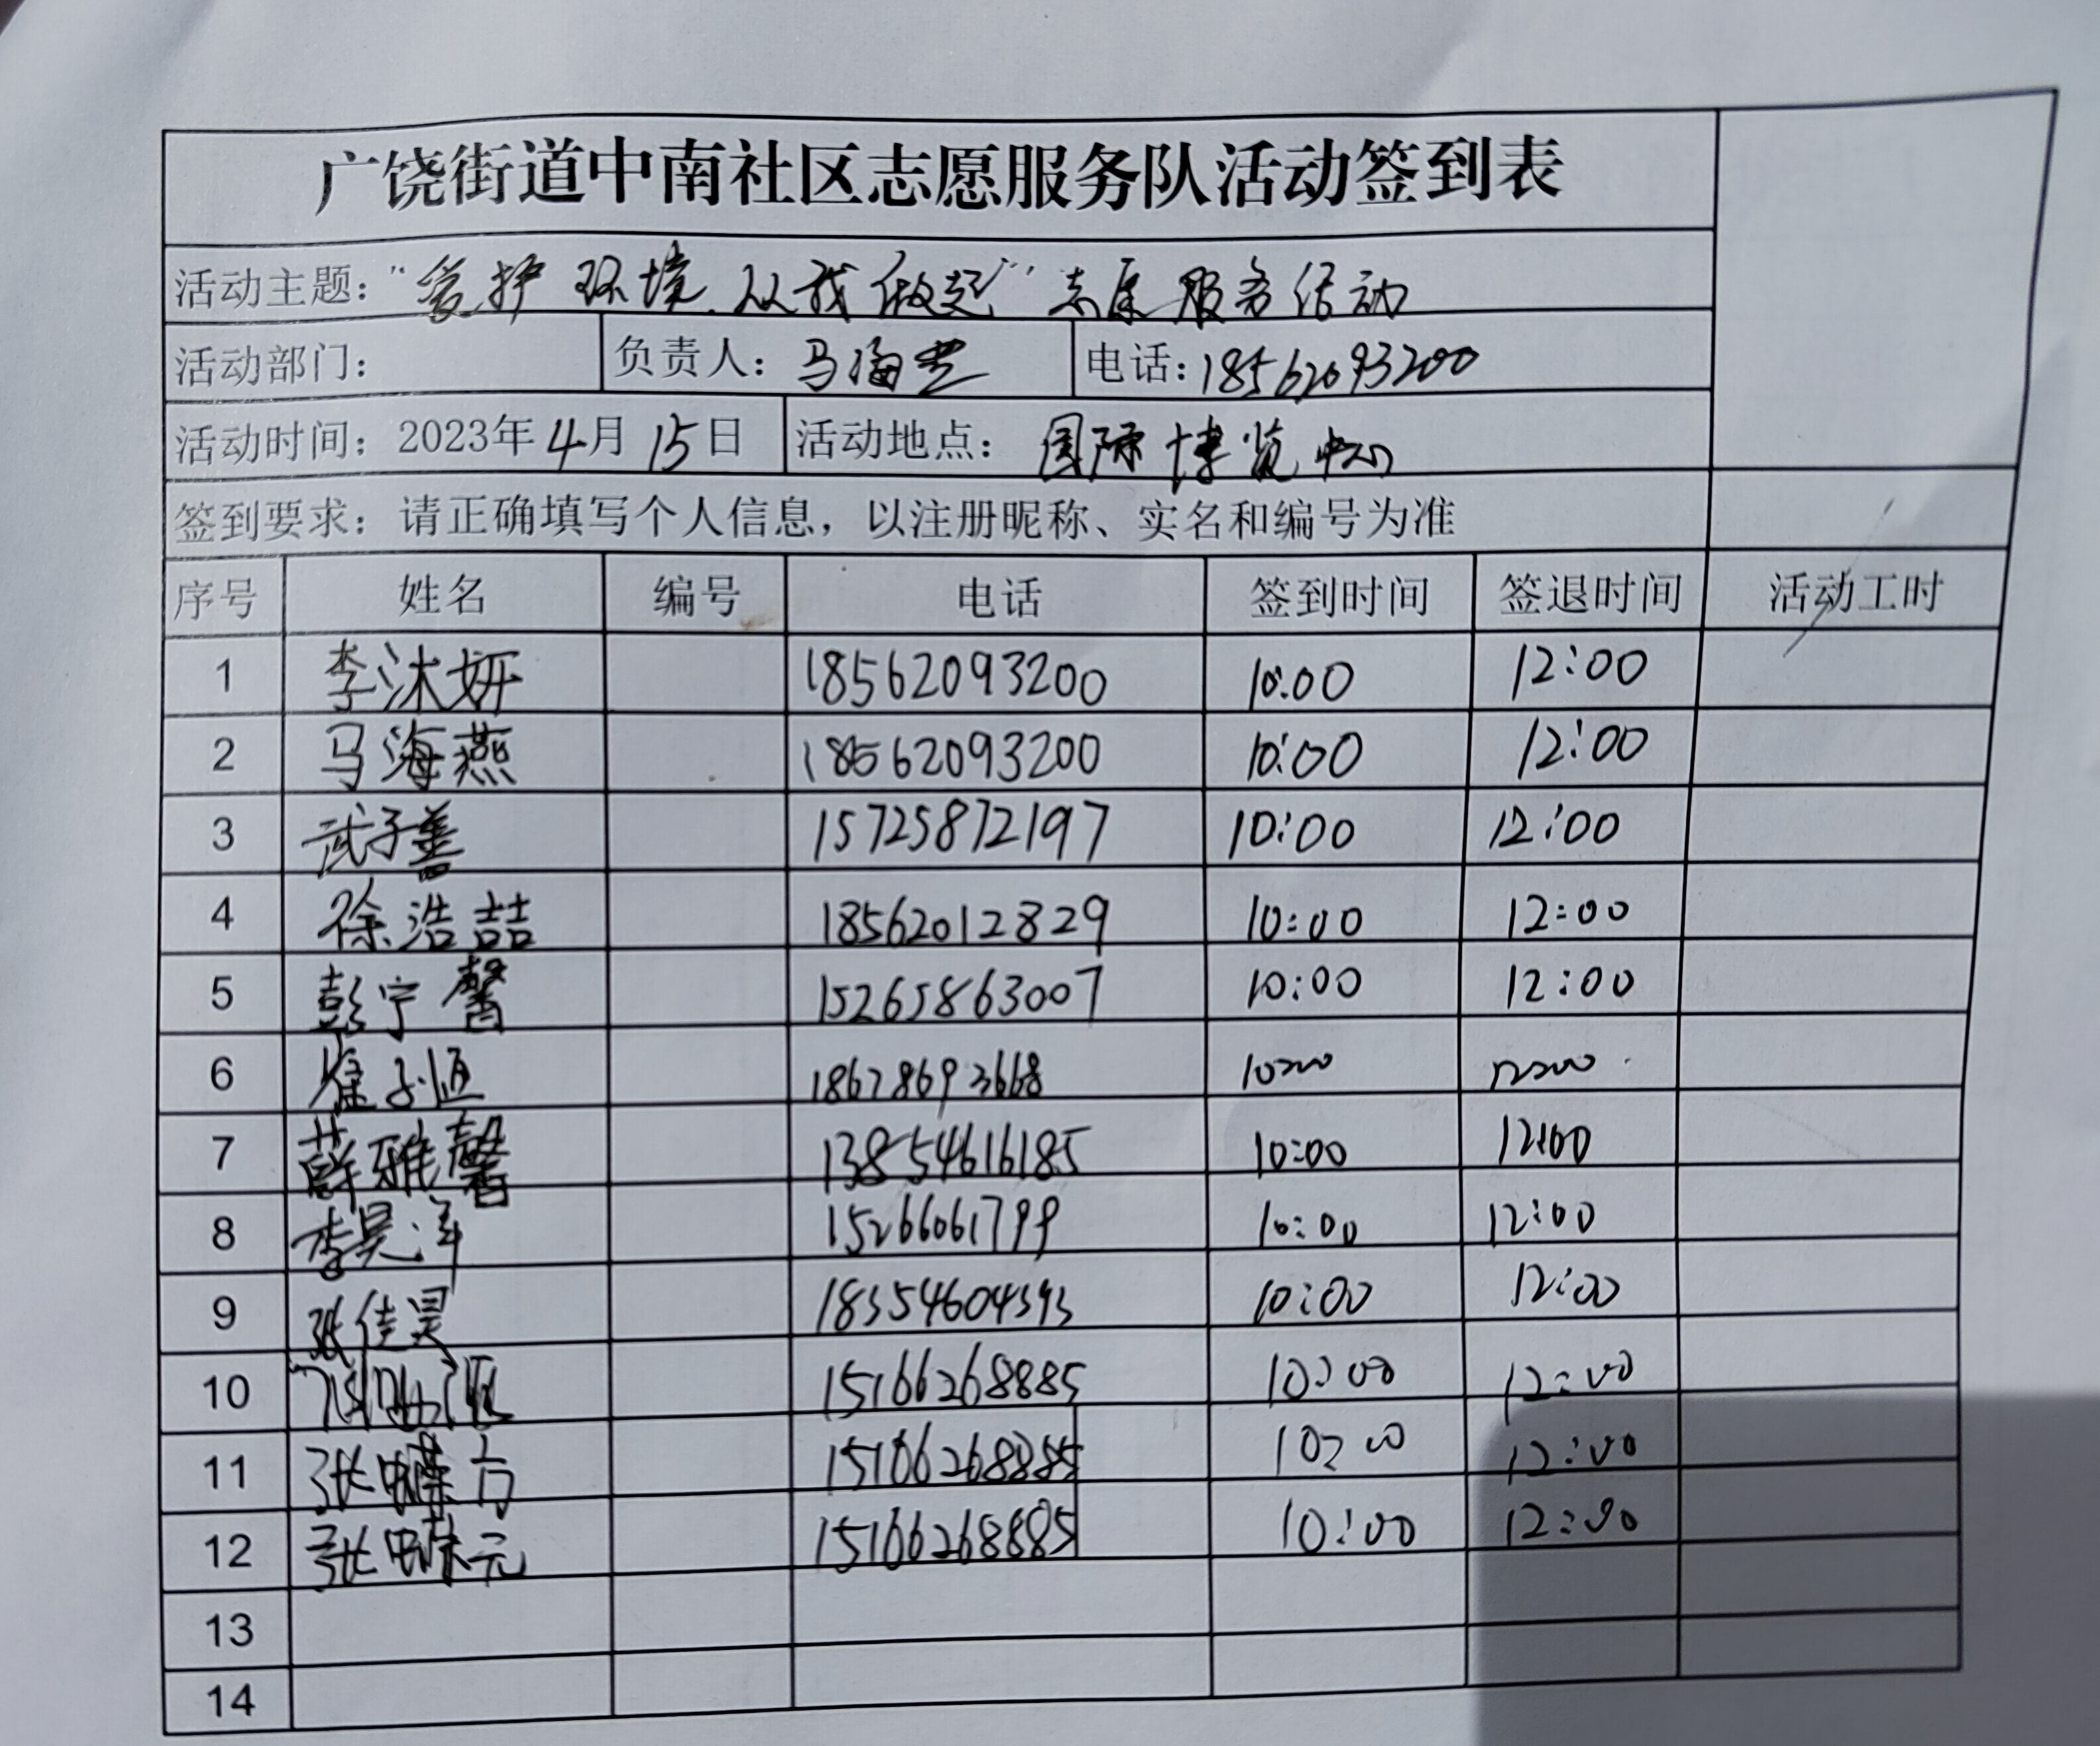 广饶街道中南社区志愿服务队活动签到表
活动主题：“爱护环境.从我做起”志愿服务活动
活动部门： 负责人：马海 电话：18562093200
活动时间：2023年4月15日 活动地点：国际博览中心
签到要求：请正确填写个人信息，以注册昵称、实名和编号为准
序号 姓名 编号 电话 签到时间 签退时间 活动工时
1 李沐妍 18562093200 10:00 12:00
2 马海燕 18562093200 10:00 12:00
3 武子善 15725872197 10:00 12:00
4 徐浩喆 18562012829 10:00 12:00
5 彭宁馨 15265863007 10:00 12:00
6 崔子恒 18678693668 10:00 12:00
7 薛雅馨 13854616185 10:00 12:00
8 李昊洋 15266061799 10:00 12:00
9 张佳昊 18354604393 10:00 12:00
10 15166268885 10:00 12:00
11 张 方 15166268885 10:00 12:00
12 张 元 15166268885 10:00 12:00
13
14